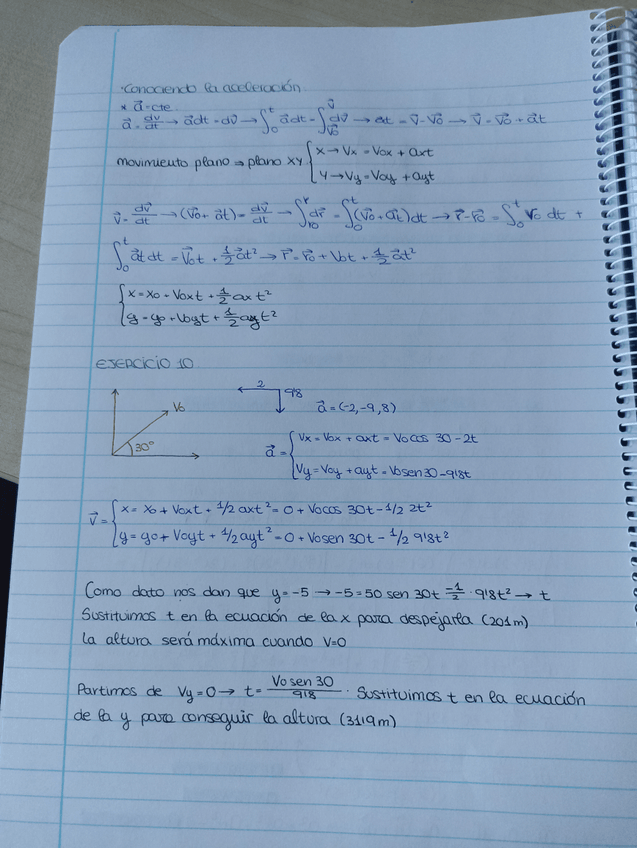 ·Conociendo la aceleración
* a⃗=cte
a⃗ = dv⃗/dt → a⃗dt = dv⃗ → ∫₀ᵗ a⃗dt = ∫_v⃗₀^v⃗ dv⃗ → at = v⃗-v⃗₀ → v⃗ = v⃗₀ + a⃗t
movimiento plano ⇒ plano xy { x → Vx = Vox + axt
Y → Vy = Voy + ayt
v⃗ = dv⃗/dt → (v⃗₀ + a⃗t) = dv⃗/dt → ∫_r0^r dr⃗ = ∫₀ᵗ (v⃗₀ + a⃗t)dt → r⃗-r⃗₀ = ∫₀ᵗ v⃗₀ dt +
∫₀ᵗ a⃗t dt = v⃗₀t + 1/2 a⃗t² → r⃗ = r⃗₀ + Vot + 1/2 a⃗t²
{ x = x₀ + Voxt + 1/2 axt²
y = y₀ + Voyt + 1/2 ayt²
EJERCICIO 10
2
9'8
Vo
a⃗ = (-2,-9,8)
30°
a⃗ = { Vx = Vox + axt = Vocos 30 - 2t
Vy = Voy + ayt = Vosen 30 - 9'8t
v⃗ = { x = x₀ + Voxt + 1/2 axt² = 0 + Vocos 30t - 1/2 2t²
y = y₀ + Voyt + 1/2 ayt² = 0 + Vosen 30t - 1/2 9'8t²
Como dato nos dan que y=-5 → -5 = 50 sen 30t -1/2 · 9'8t² → t
Sustituimos t en la ecuación de la x para despejarla (201m)
La altura será máxima cuando V=0
Partimos de Vy=0 → t = Vo sen 30/9'8 · Sustituimos t en la ecuación
de la y para conseguir la altura (31'9m)